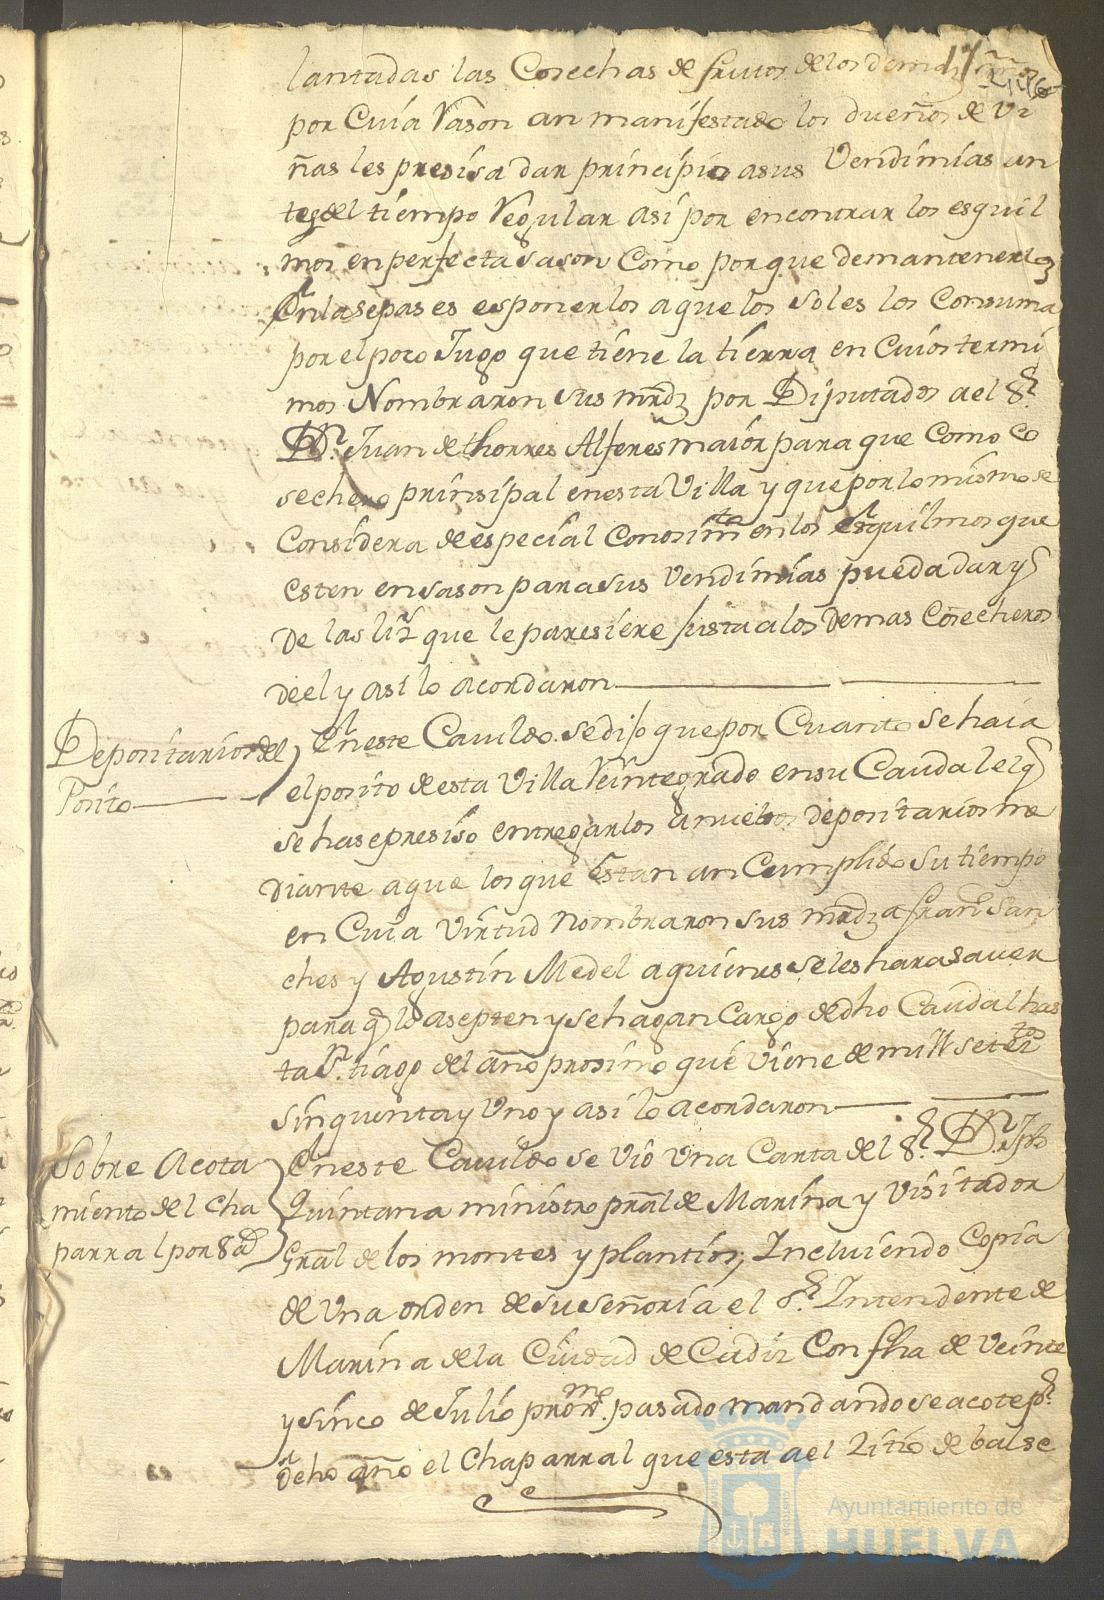 lantadas las Cosechas de frutos de los demas años
por Cuia Rason an manifestado los dueños de Vi
ñas les presisa dar principio asus Vendimias an
tes del tiempo Regular asi por encontrar los esquil
mos en perfecta sason Como porque demantenerlos
En las sepas es esponerlos a que los soles los Consuma
por el poco Jugo que tiene la tierra en Cuios termi
mos Nombraron sus mrdz por Diputados ael Sr.
Dn. Juan de thorres Alferes maior para que Como Co
sechero prinsipal en esta Villa y que por lo mismo se
Considera de especial Conosimto en los Esquilmos que
esten en sason para sus Vendimias pueda dar y
De las liz que le paresiere justa a los Demas Cosecheros
de el y asi lo acordaron
Depositarios del
Posito
En este Cavildo se dijo que por Cuanto se haia
el posito de esta Villa Reintegrado en su Caudal el q
se hase presiso entregarlos a nuebos depositarios me
diante a que los que Estan an Cumplido su tiempo
en Cuia Virtud nombraron sus mrdz a Franco San
ches y Agustin Medel a quienes se les hara saver
para q lo asepten y se hagan Cargo de dho Caudal has
ta Sn.tiago del año prosimo que viene de mill setetos
sinquenta y Uno y asi lo acordaron
Sobre Acota
miento del Cha
parral por Sa
En este Cavildo se Vio Una Carta del Sr. Dn. Jph
Quintana ministro pral de Marina y Visitador
Gral de los montes y plantios, Incluiendo Copia
de Una orden de su señoria el Sr. Intendente de
Marina de la Ciudad de Cadiz Con fha de Veinte
y sinco de Julio proxmo. pasado mandando se acote pr.
dcho año el Chaparral que esta ael Zitio de balse
Ayuntamiento de
HUELVA